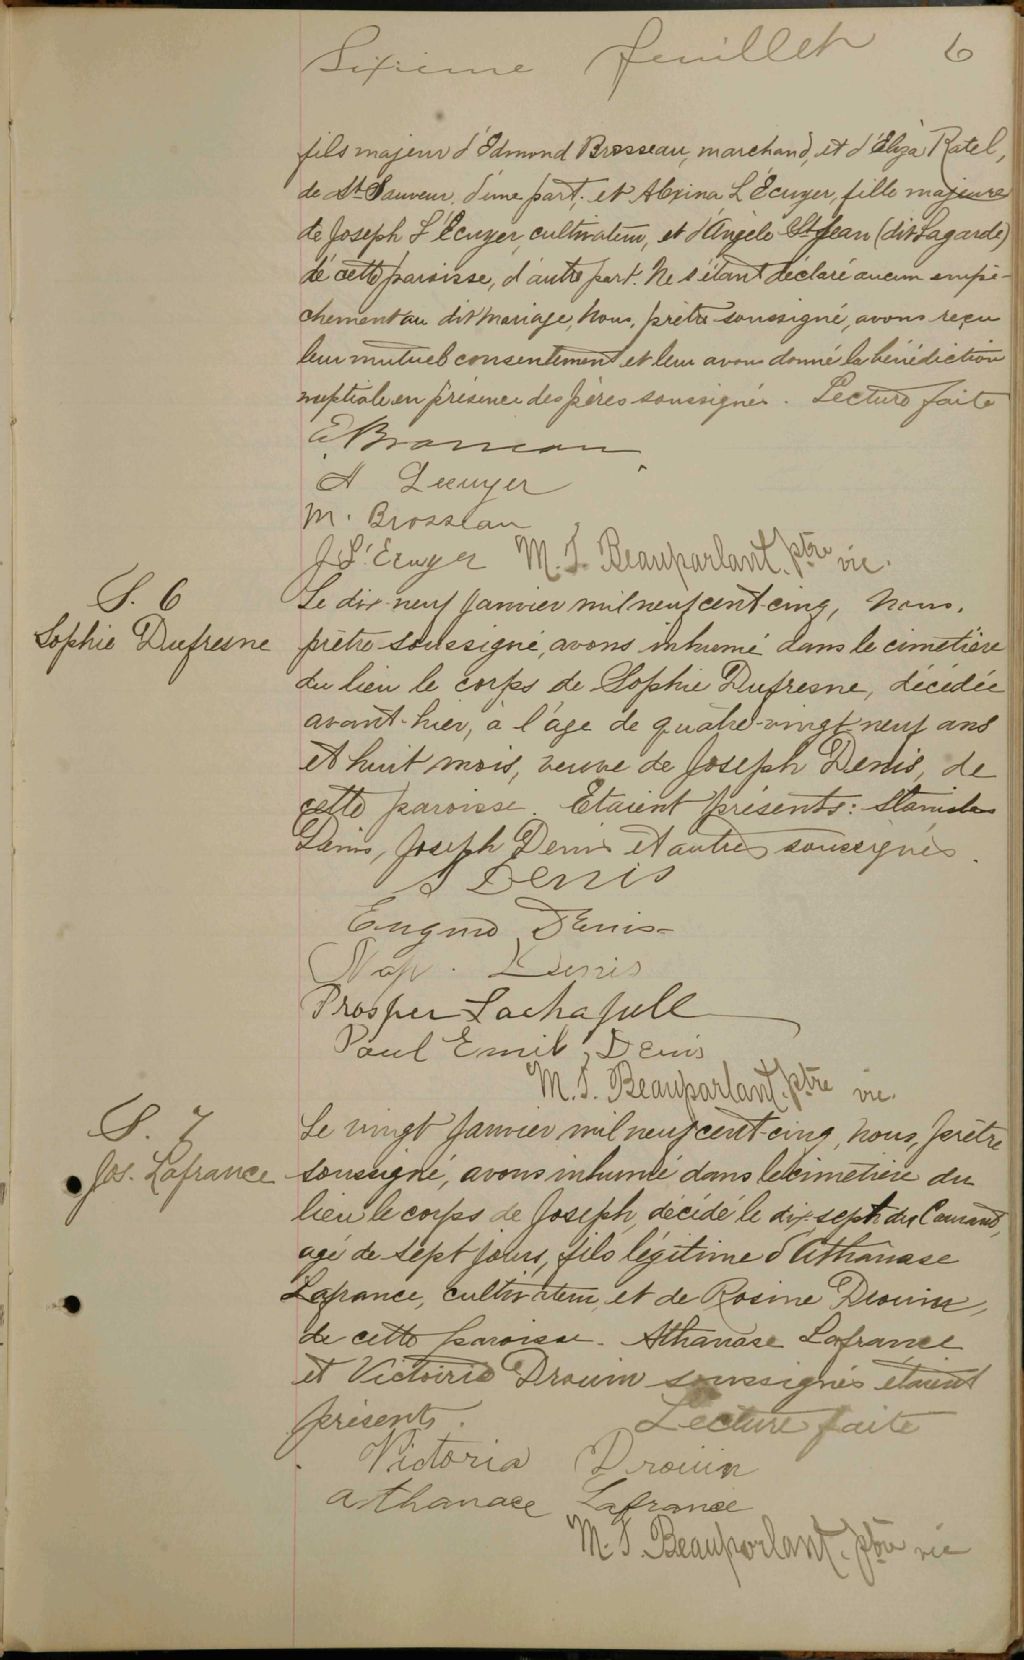 Sixieme feuillet 6
fils majeur d'Edmond Brosseau, marchand, et d'Eliza Ratel,
de St Sauveur, d'une part; et Alexina L'Écuyer, fille majeure
de Joseph L'Écuyer, cultivateur, et d'Angèle St Jean (dit Lagarde)
de cette paroisse, d'autre part. Ne s'étant déclaré aucun empê-
chement au dit mariage, Nous, prêtre soussigné, avons reçu
leur mutuel consentement et leur avons donné la bénédiction
nuptiale en présence des pères soussignés. Lecture faite
E. Brosseau
A Lecuyer
M. Brosseau
J. L'Ecuyer M. J. Beauparlant, ptre vic.
S. 6
Sophie Dufresne
Le dix-neuf Janvier mil neuf cent-cinq, Nous,
prêtre soussigné, avons inhumé dans le cimetière
du lieu le corps de Sophie Dufresne, décédée
avant-hier, à l'âge de quatre-vingt neuf ans
et huit mois, veuve de Joseph Denis, de
cette paroisse. Etaient présents: Stanislas
Denis, Joseph Denis et autres soussignés.
S Denis
Denis
Nap. Denis
Prosper Lachapelle
Paul Emile Denis
M. J. Beauparlant, ptre vic.
S. 7
Jos. Lafrance
Le vingt Janvier mil neuf cent-cinq, nous, prêtre
soussigné, avons inhumé dans le cimetière du
lieu le corps de Joseph, décédé le dix-sept du Courant,
agé de sept jours, fils légitime d'Athanase
Lafrance, cultivateur, et de Rosine Drouin,
de cette paroisse. Athanase Lafrance
et Victoria Drouin soussignés étaient
présents. Lecture faite
Victoria Drouin
Athanace Lafrance
M. J. Beauparlant, ptre vic